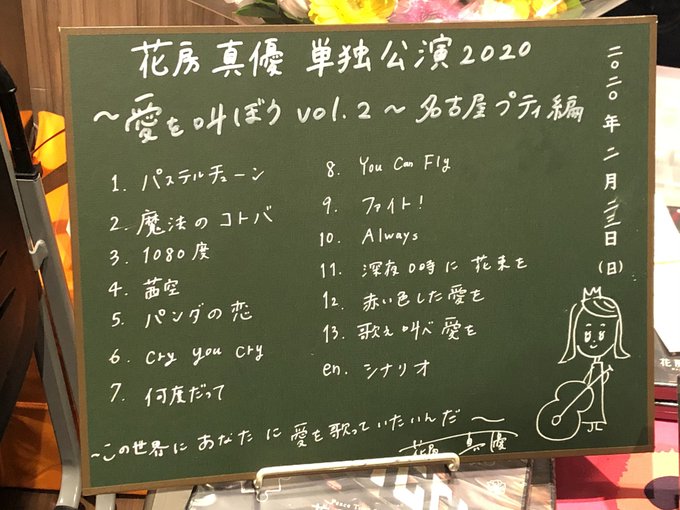 花房真優 単独公演2020
～愛を叫ぼう vol.2～名古屋プティ編
二〇二〇年二月二三日(日)
1. パステルチューン
2. 魔法のコトバ
3. 1080度
4. 茜空
5. パンダの恋
6. cry you cry
7. 何度だって
8. You Can Fly
9. ファイト!
10. Always
11. 深夜0時に花束を
12. 赤い色した愛を
13. 歌え叫べ愛を
en. シナリオ
～この世界にあなたに愛を歌っていたいんだ～
花房真優
花房